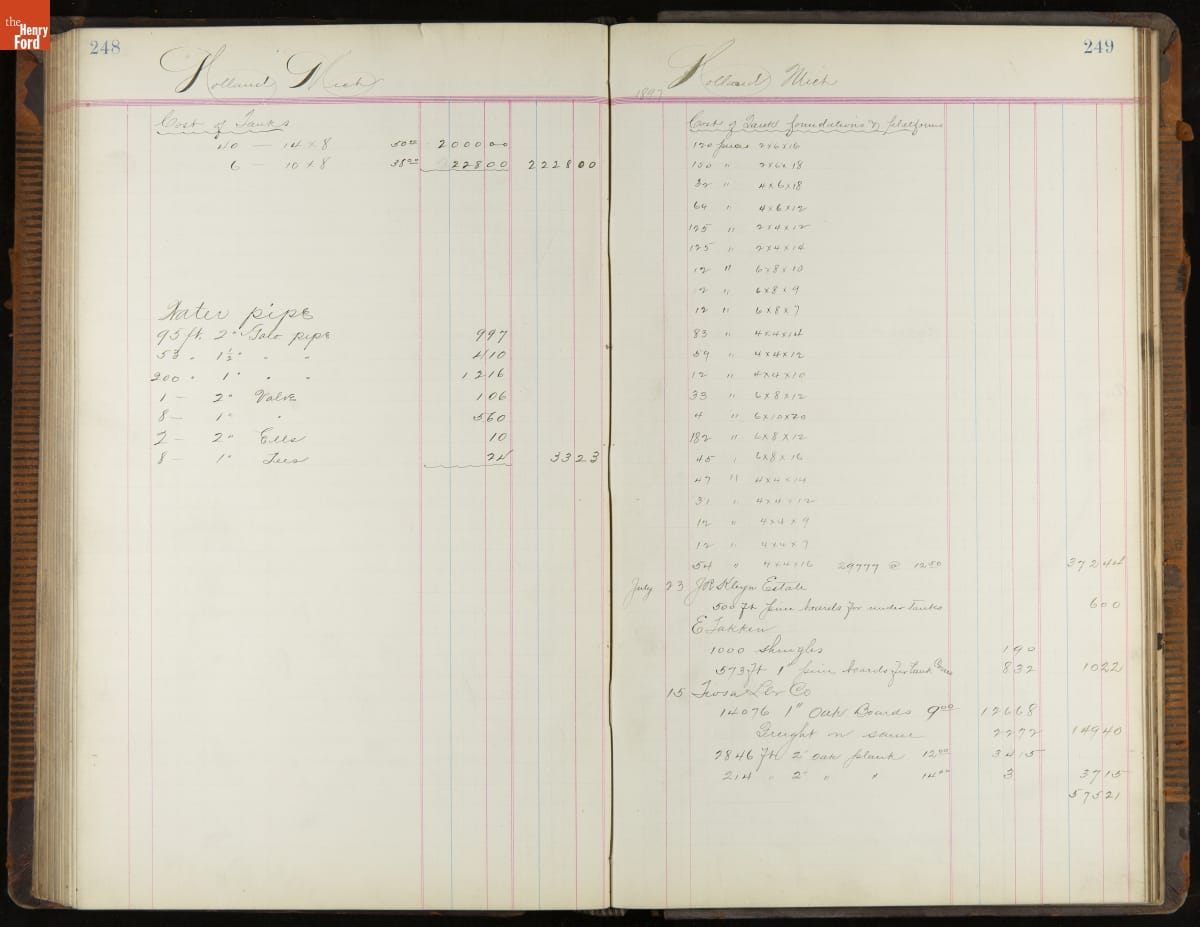 the
Henry
Ford
248
Holland Mich
Cost of Tanks
40 — 14 x 8 50 00 2000 00
6 — 10 x 8 38 00 228 00 2228 00
Water pipe
95 ft. 2" Galv pipe 9 97
53 " 1½" " " 4 10
200 " 1" " " 12 16
1 — 2" Valve 1 06
8 — 1" " 5 60
2 — 2" Ells 10
8 — 1" Tees 24 33 23
249
Holland Mich
1897
Cost of Tank foundations & platforms
120 pieces 2x6x16
100 " 2x6x18
32 " 4x6x18
64 " 4x6x12
125 " 2x4x12
125 " 2x4x14
12 " 6x8x10
12 " 6x8x9
12 " 6x8x7
83 " 4x4x14
59 " 4x4x12
12 " 4x4x10
33 " 6x8x12
4 " 6x10x20
182 " 6x8x12
45 " 6x8x16
47 " 4x4x14
31 " 4x4x12
12 " 4x4x9
12 " 4x4x7
54 " 4x4x16 29777 @ 12 50 372 44
July 23 J R Kleyn Estate
500 ft pine boards for under tanks 6 00
E Takken
1000 shingles 1 90
573 ft 1" pine boards for tank 8 32 10 22
15 Lbr Co
14076 1" Oak Boards 9 00 126 68
Freight on same 22 72 149 40
2846 ft 2" oak plank 12 00 34 15
214 " 2" " " 14 00 3 37 15
575 21